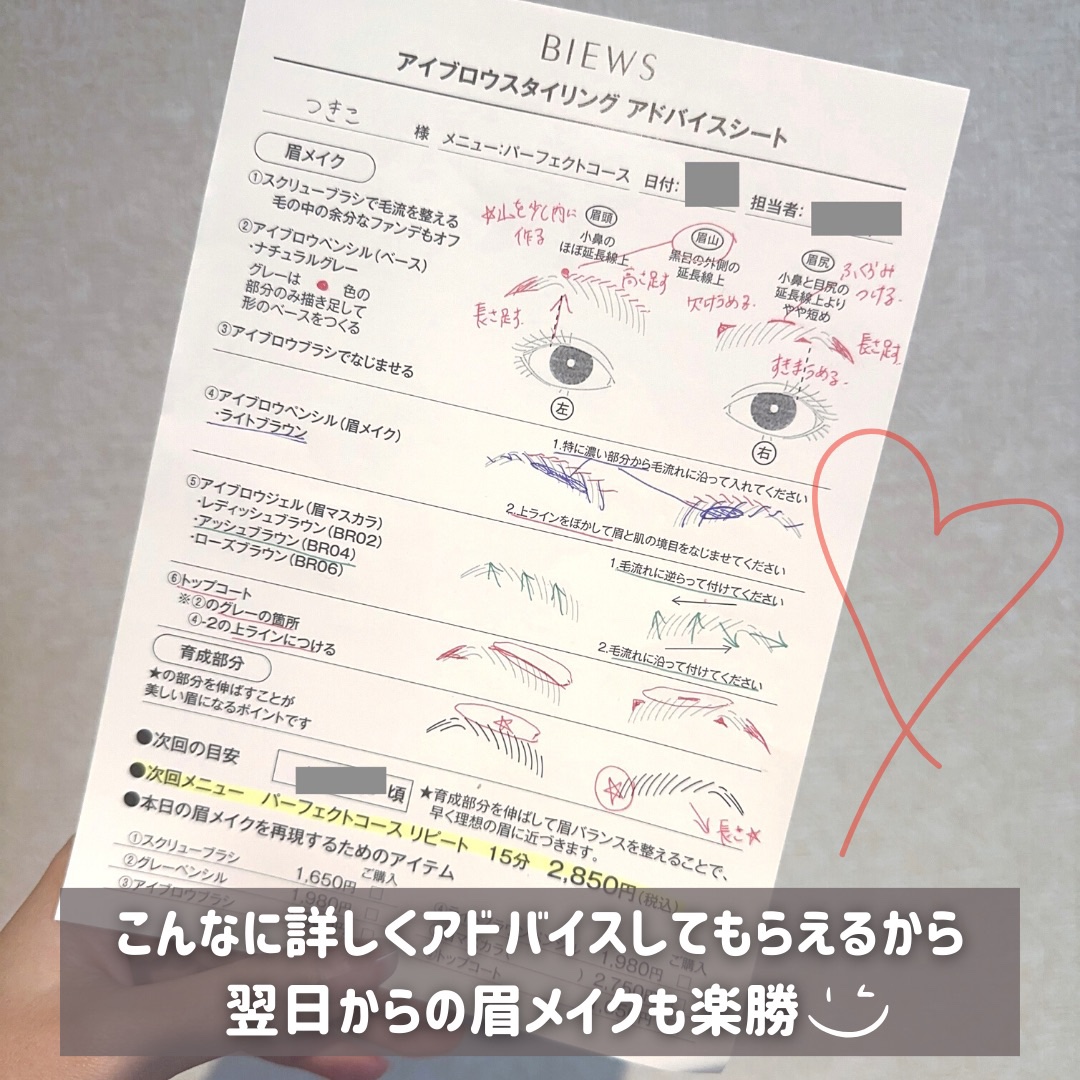 BIEWS
アイブロウスタイリング アドバイスシート
つきこ 様 メニュー:パーフェクトコース 日付: 担当者:
眉メイク
①スクリューブラシで毛流を整える
毛の中の余分なファンデもオフ
②アイブロウペンシル(ベース)
・ナチュラルグレー
グレーは 色の
部分のみ描き足して
形のベースをつくる
③アイブロウブラシでなじませる
☆山を少し内に
作る
眉頭
小鼻の
ほぼ延長線上
眉山
黒目の外側の
延長線上
眉尻
小鼻と目尻の
延長線上より
やや短め
ふくらみ
つける.
高さ足す
欠けうめる.
長さ足す.
長さ足す.
すきまうめる.
左
右
④アイブロウペンシル(眉メイク)
・ライトブラウン
1.特に濃い部分から毛流れに沿って入れてください
2.上ラインをぼかして眉と肌の境目をなじませてください
⑤アイブロウジェル(眉マスカラ)
・レディッシュブラウン(BR02)
・アッシュブラウン(BR04)
・ローズブラウン(BR06)
1.毛流れに逆らって付けてください
2.毛流れに沿って付けてください
⑥トップコート
※②のグレーの箇所
④-2の上ラインにつける
育成部分
★の部分を伸ばすことが
美しい眉になるポイントです
長さ☆
●次回の目安 頃
★育成部分を伸ばして眉バランスを整えることで、
早く理想の眉に近づきます。
●次回メニュー パーフェクトコース リピート 15分 2,850円(税込)
●本日の眉メイクを再現するためのアイテム
ご購入
①スクリューブラシ 1,650円 □
②グレーペンシル 1,980円 □
③アイブロウブラシ
ご購入
1,980円 □
トップコート
こんなに詳しくアドバイスしてもらえるから
翌日からの眉メイクも楽勝